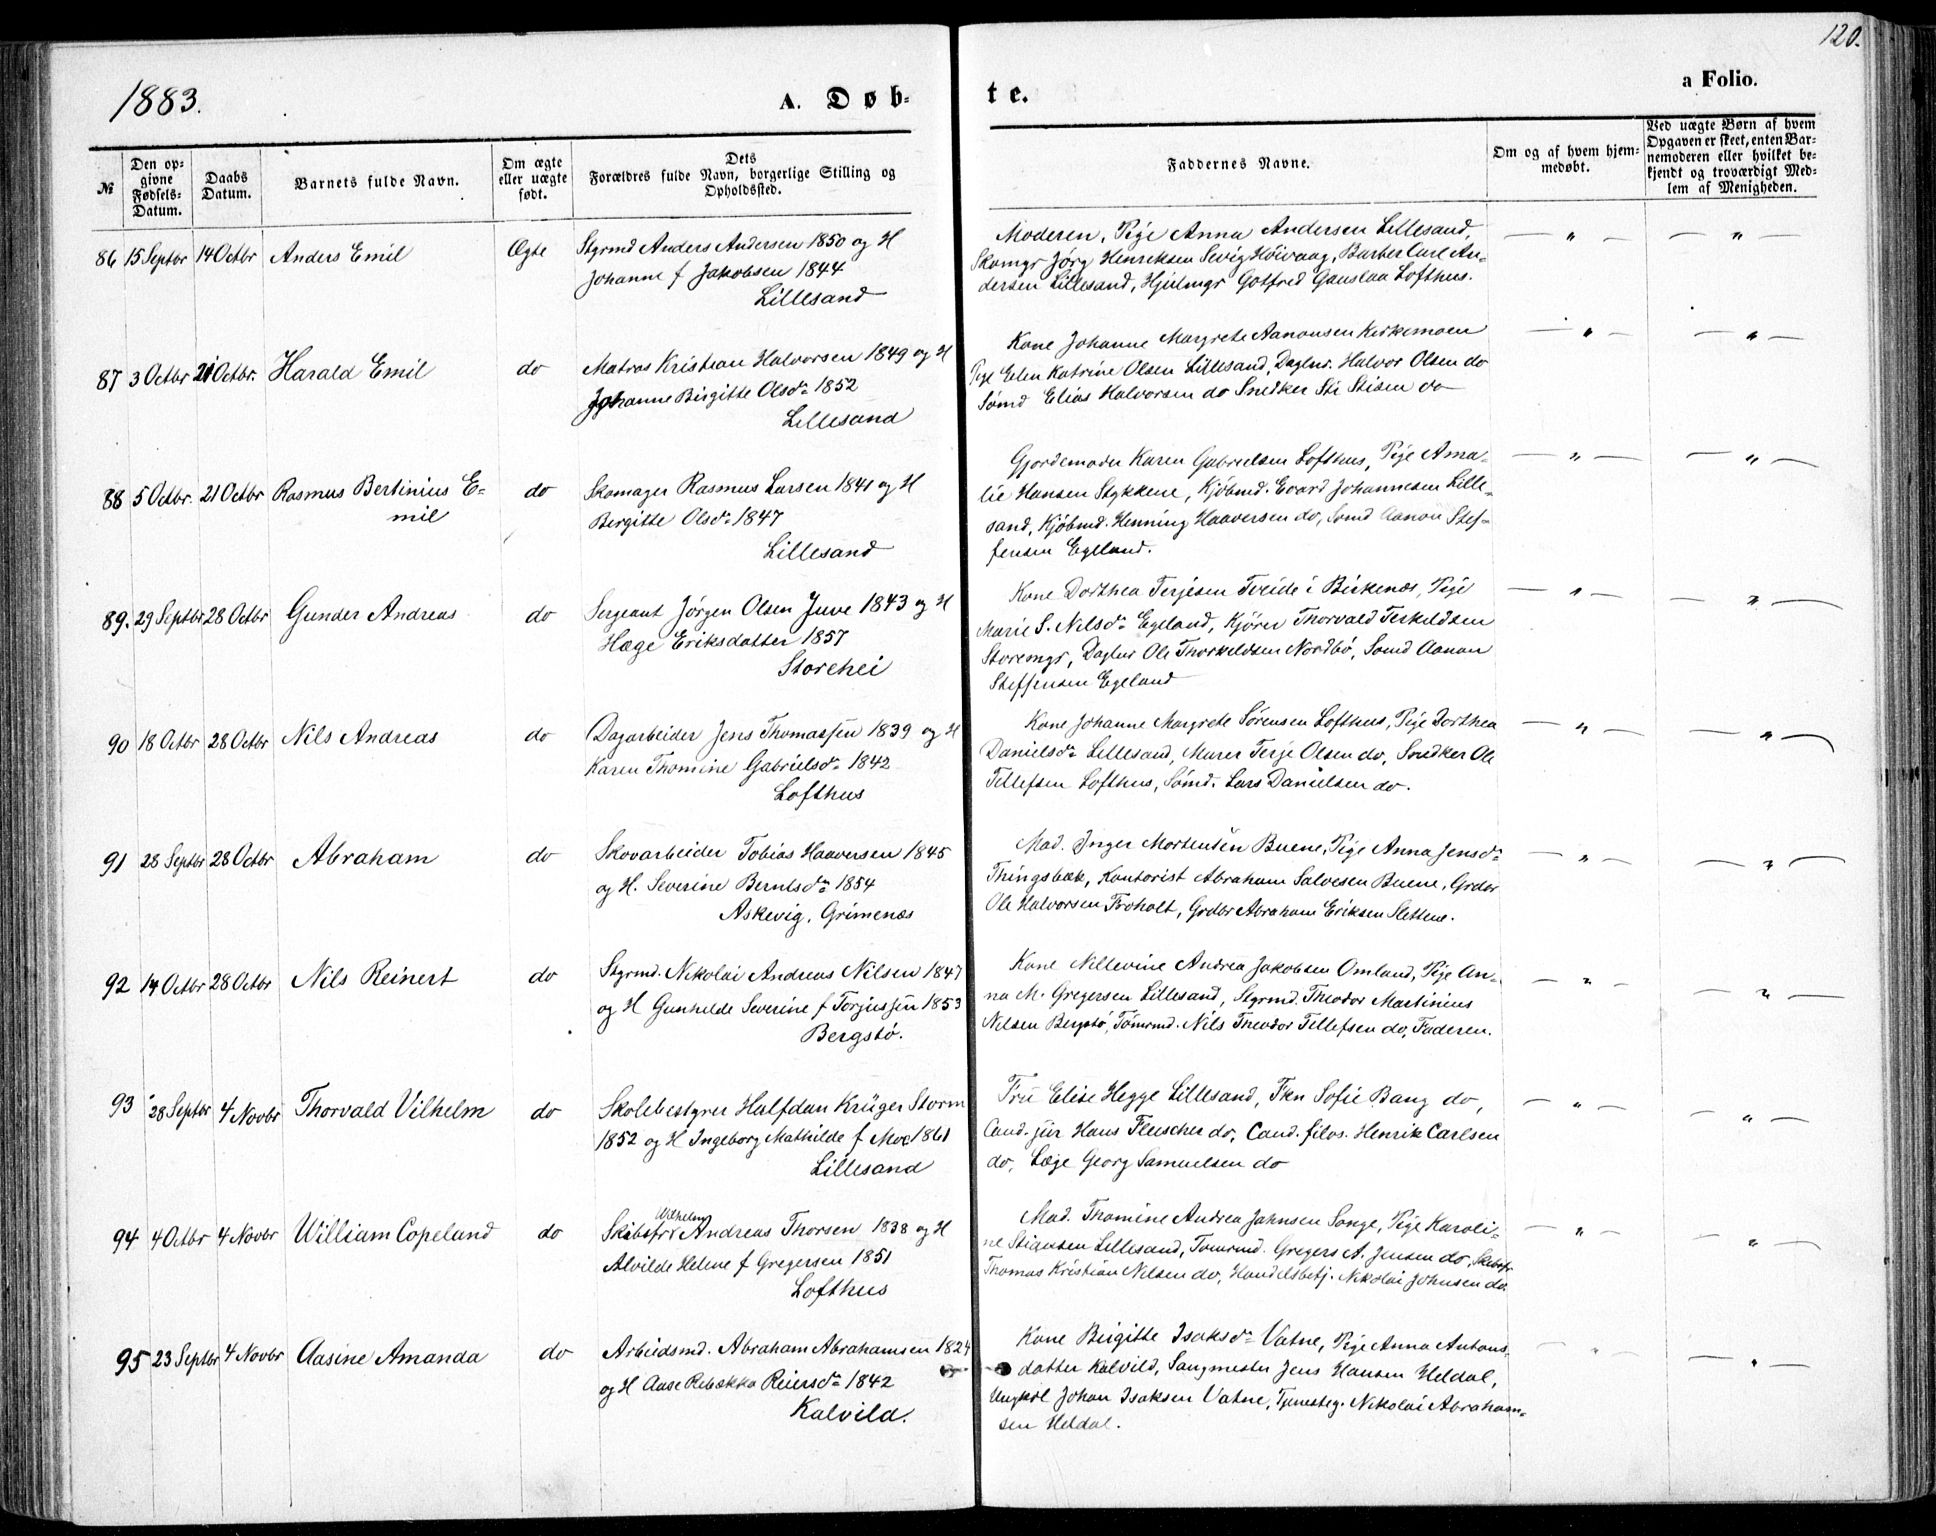 120.
1883.
A. Døb-
te.
a Folio.
№
Den op-
givne
Fødsels-
Datum.
Daabs
Datum.
Barnets fulde Navn.
Om ægte
eller uægte
født.
Dets
Forældres fulde Navn, borgerlige Stilling og
Opholdssted.
Faddernes Navne.
Om og af hvem hjem-
medøbt.
Ved uægte Børn af hvem
Opgaven er skeet, enten Bar-
nemoderen eller hvilket be-
kjendt og troværdigt Med-
lem af Menigheden.
86 15 Septbr 14 Octbr Anders Emil Ægte Styrmd Anders Andersen 1850 og H
Johanne f Jakobsen 1844
Lillesand
Moderen, Pige Anna Andersen Lillesand,
Skomgr Jørg Henriksen Sevig Høivaag, Barber Carl An-
dersen Lillesand, Hjulmgr Gotfred Gauslaa Lofthus.
87 3 Octbr 21 Octbr. Harald Emil do Matros Kristian Halvorsen 1849 og H
Johanne Birgitte Olsdr 1852
Lillesand
Kone Johanne Margrete Aanonsen Kirkemoen
Pige Elen Katrine Olsen Lillesand, Daglnr. Halvor Olsen do
Sømd Elias Halvorsen do Snedker Sti Stisen do
88 5 Octbr. 21 Octbr Rasmus Bertinius E=
mil
do Skomager Rasmus Larsen 1841 og H
Bergitte Olsdr 1847
Lillesand
Gjordemoder Karen Gabrielsen Lofthus, Pige Ama-
lie Hansen Stykkene, Kjøbmd. Evard Johannesen Lille-
sand, Kjøbmd. Henning Haaversen do, Sømd Aanon Stef-
fensen Egeland.
89. 29 Septbr 28 Octbr Gunder Andreas do Sergeant Jørgen Olsen Juve 1843 og H
Hæge Eriksdatter 1857
Storehei
Kone Dorthea Terjesen Tveide i Birkenæs, Pige
Marie S. Nilsdr Egeland, Kjører Thorvald Terkeldsen
Storemyr, Daglnr Ole Thorkeldsen Nordbø, Sømd Aanon
Steffensen Egeland
90 18 Octbr 28 Octbr Nils Andreas do Dagarbeider Jens Thomassen 1839 og H
Karen Thomine Gabrielsdr 1842
Lofthus
Kone Johanne Margrete Sørensen Lofthus, Pige Dorthea
Danielsdr Lillesand, Murer Terje Olsen do, Snedker Ole
Tellefsen Lofthus, Sømd. Lars Danielsen do.
91 28 Septbr 28 Octbr Abraham do Skovarbeider Tobias Haaversen 1845
og H. Severine Berntsdr 1854
Askevig, Grimenæs
Mad. Inger Mortensen Buene, Pige Anna Jensdr
Thingsbæk, Kontorist Abraham Salvesen Buene, Grdbr
Ole Halvorsen Froholt, Grdbr Abraham Eriksen Slettene.
92 14 Octbr 28 Octbr Nils Reinert do Styrmd. Nikolai Andreas Nilsen 1847
og H Gunhilde Severine f Torjussen 1853
Bergstø.
Kone Nillevine Andrea Jakobsen Omland, Pige An-
na M. Gregersen Lillesand, Styrmd. Theodor Martinius
Nilsen Bergstø, Tømrmd. Nils Theodor Tellefsen do, Faderen.
93 28 Septbr 4 Novbr Thorvald Vilhelm do Skolebestyrer Halfdan Krüger Storm
1852 og H Ingeborg Mathilde f Moe 1861
Lillesand
Fru Elise Hegge Lillesand, Fkn Sofie Bang do,
Cand. jur Hans Fleischer do, Cand. filos. Henrik Carlsen
do, Læge Georg Samuelsen do
94 4 Octbr 4 Novbr William Copeland do Skibsfr Wilhelm Andreas Thorsen 1838 og H
Alvilde Helene f Gregersen 1851
Lofthus
Mad. Thomine Andrea Jahnsen Songe, Pige Karoli-
ne Stiansen Lillesand, Tømrmd. Gregers A. Jensen do, Skibsfr.
Thomas Kristian Nilsen do, Handelsbetj. Nikolai Johnsen do.
95 23 Septbr 4 Novbr Aasine Amanda do Arbeidsmd. Abraham Abrahamsen 1824
og H Aase Rebekka Reiersdr 1842
Kalvild.
Kone Birgitte Isaksdr Vatne, Pige Anna Antons-
datter Kalvild, Sangmester Jens Hansen Heldal,
Ungkrl Johan Isaksen Vatne, Tjenesteg. Nikolai Abraham-
sen Heldal.